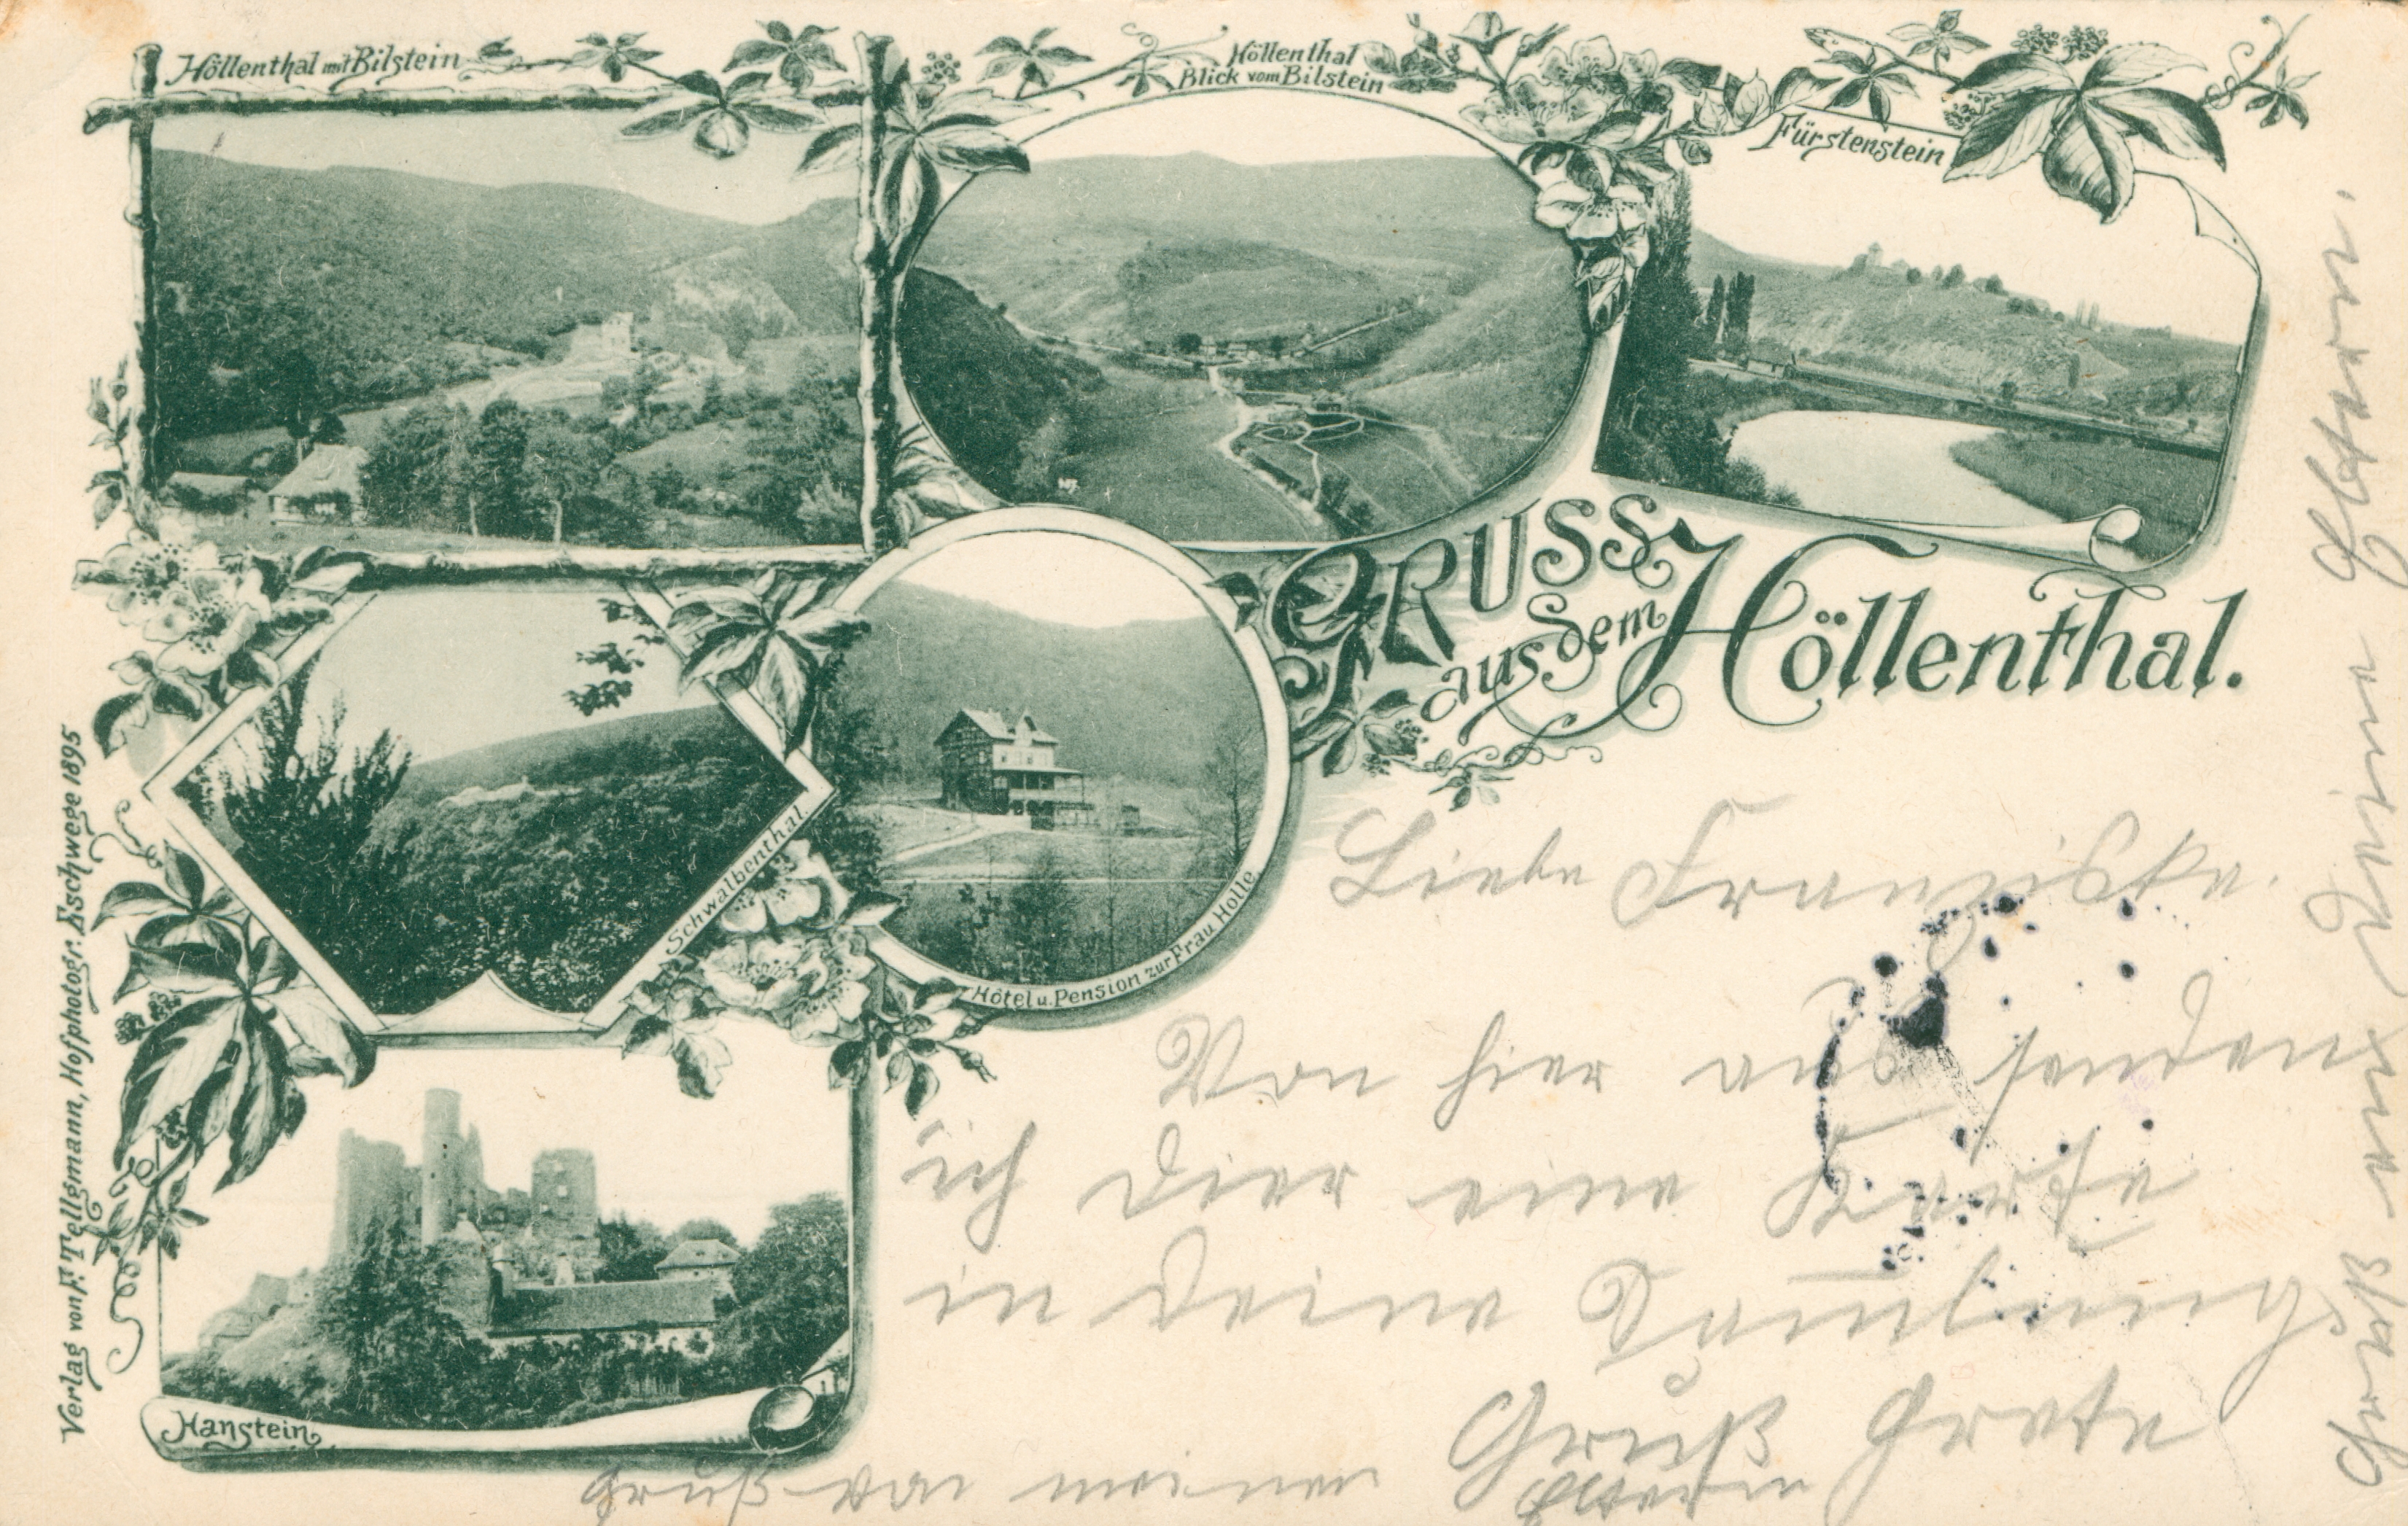 Höllenthal mit Bilstein
Höllenthal
Blick vom Bilstein
Fürstenstein
GRUSS
aus dem
Höllenthal.
Schwalbenthal.
Hôtel u. Pension zur Frau Holle
Hanstein
Verlag von F. Tellgmann, Hofphotogr. Eschwege 1895
Liebe Franziska.
Von hier aus senden
ich dier eine Karte
in deine Samlung
Gruß Grete
Gruß von meinen
Gruß an deine Eltern.